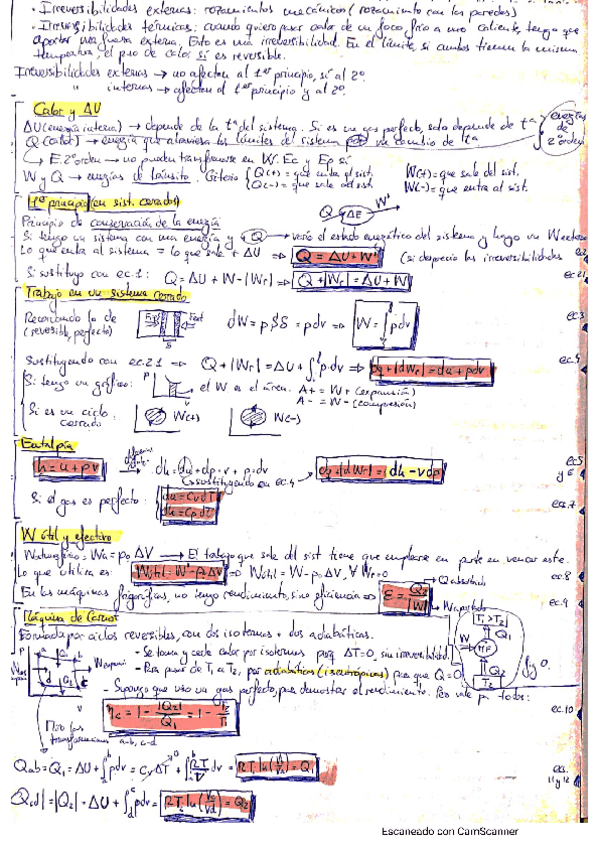 · Irreversibilidades externas: rozamientos mecánicos (rozamiento con las paredes)
· Irreversibilidades térmicas: cuando quiero pasar calor de un foco frío a uno caliente, tengo que
aportar una fuerza externa. Esto es una irreversibilidad. En el límite, si ambos tienen la misma
temperatura, el paso de calor sí es reversible.
Irreversibilidades externas → no afectan al 1er principio, sí al 2º.
" internas → afectan al 1er principio y al 2º.
Calor y ΔU
ΔU (energía interna) → depende de la tª del sistema. Si es un gas perfecto, solo depende de tª
Q (calor) → energía que atraviesa los límites del sistema por un cambio de tª
energías de 2º orden
↳ E 2º orden → no pueden transformarse en W. Ec y Ep sí
W y Q → energías de tránsito. Criterio { Q(+) = que entra al sist. W(+) = que sale del sist.
Q(-) = que sale del sist. W(-) = que entra al sist.
1er principio (en sist. cerrados)
Q → ΔE W'
Principio de conservación de la energía
Si tengo un sistema con una energía y Q → varío el estado energético del sistema y luego un W externo
Lo que entra al sistema = lo que sale + ΔU ⇒ Q = ΔU + W' (si desprecio las irreversibilidades
Si sustituyo con ec.1: Q = ΔU + W - |Wr| ⇒ Q + |Wr| = ΔU + W ec 2.1
Trabajo en un sistema cerrado
Recordando lo de
(reversible, perfecto) Fext dW = p S δ = p dv ⇒ W = ∫ p dv ec.3
Sustituyendo con ec.2.1 ⇒ Q + |Wr| = ΔU + ∫ p dv ⇒ dq + |dWr| = du + p dv ec.4
Si tengo un gráfico: P V el W es el área. A+ = W+ (expansión)
A- = W- (compresión)
Si es un ciclo
cerrado : W(+) W(-)
Entalpía
h = u + pv → dh = du + dp·v + p·dv
↳ sustituyendo en ec.4 → dq + |dWr| = dh - v dp ec5 y 6
Si el gas es perfecto: { du = Cv dT
dh = Cp dT ec.7
W útil y efectivo
Watmosférico = Wa = p0 ΔV → El trabajo que sale del sist tiene que emplearse en parte en vencer este.
Lo que utiliza es: Wútil = W' - p0 ΔV ⇒ Wútil = W - p0 ΔV, ∀ Wr=0 ec.8
En las máquinas frigoríficas, no tengo rendimiento, sino eficiencia ⇒ ε = Q2 / |W| → Q absorbido ec.9
Máquina de Carnot
Formada por ciclos reversibles, con dos isotermas + dos adiabáticas.
- Se toma y cede calor por isotermas para ΔT=0, sin irreversibilidad
- Para pasar de T1 a T2, por adiabáticas (isentrópicas) para que Q=0
- Supongo que uso un gas perfecto, para demostrar el rendimiento. Pero vale para todos:
T1 > T2
Q1
W → MF
Q2
T2
ηc = 1 - |Q2| / Q1 = 1 - T2 / T1 ec.10
Para las
transformaciones a-b, c-d
Qab = Q1 = ΔU + ∫ p dv = Cv ΔT + ∫ RT/V dv = RT1 ln(Vb/Va) = Q1 ecs. 11 y 12
|Qcd| = |Q2| = ΔU + ∫ p dv = RT2 ln(Vc/Vd) = Q2
Escaneado con CamScanner